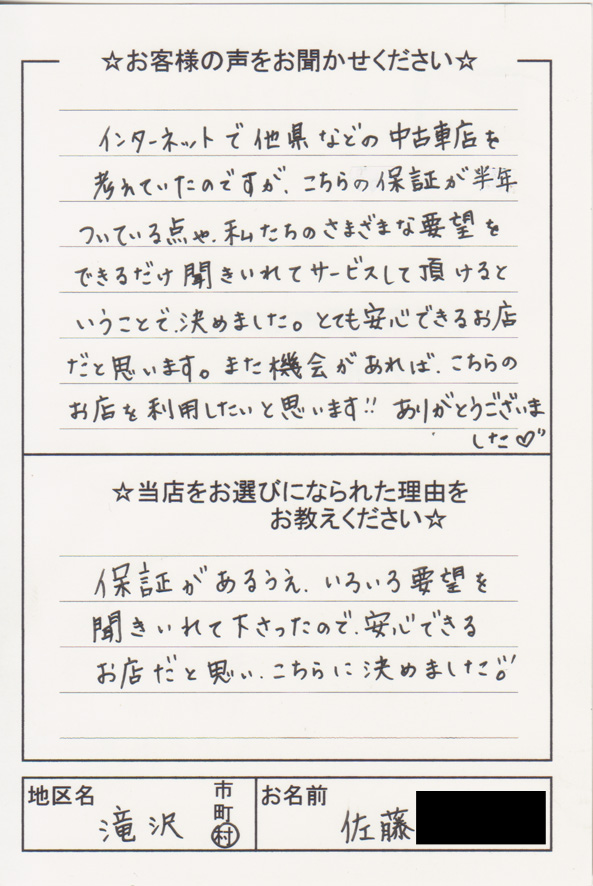 ☆お客様の声をお聞かせください☆
インターネットで他県などの中古車店を
考えていたのですが、こちらの保証が半年
ついている点や、私たちのさまざまな要望を
できるだけ聞きいれてサービスして頂けると
いうことで、決めました。とても安心できるお店
だと思います。また機会があれば、こちらの
お店を利用したいと思います!! ありがとうございま
した♡"
☆当店をお選びになられた理由を
お教えください☆
保証があるうえ、いろいろ要望を
聞きいれて下さったので、安心できる
お店だと思い、こちらに決めました。"
地区名 滝沢 市町村
お名前 佐藤